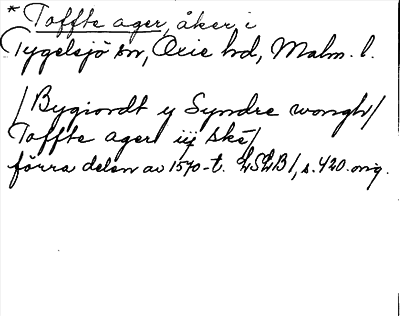 * Toffte ager, åker, i
Tygelsjö sn, Oxie hd, Malm. l.
/Bygiordt y Syndre wongh/
Toffte ager iij ske/
förra delen av 1570-t. LSLB 1, s. 420. orig.